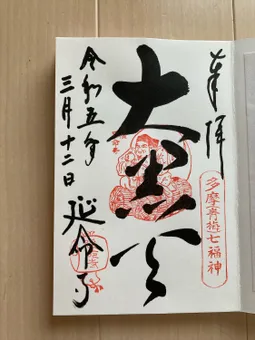 奉拝
多摩青梅七福神
大黒天
令和五年
三月十二日
延命寺